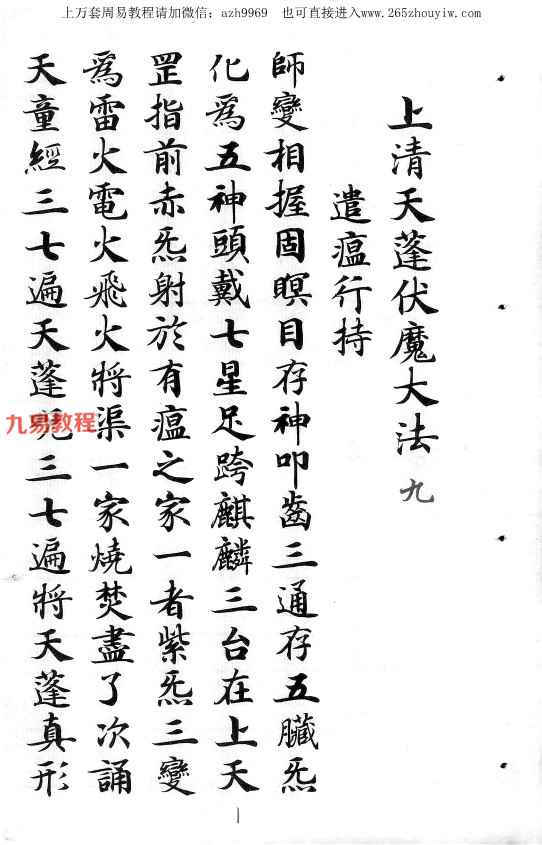 上万套周易教程请加微信：azh9969　也可直接进入www.265zhouyiw.com
上清天蓬伏魔大法九
遣瘟行持
師變相握固瞑目存神叩齒三通存五臟炁
化為五神頭戴七星足跨麒麟三台在上天
罡指前赤炁射於有瘟之家一者紫炁三變
為雷火電火飛火將渠一家燒焚盡了次誦
天童經三七遍天蓬咒三七遍將天蓬真形
九易教程
一